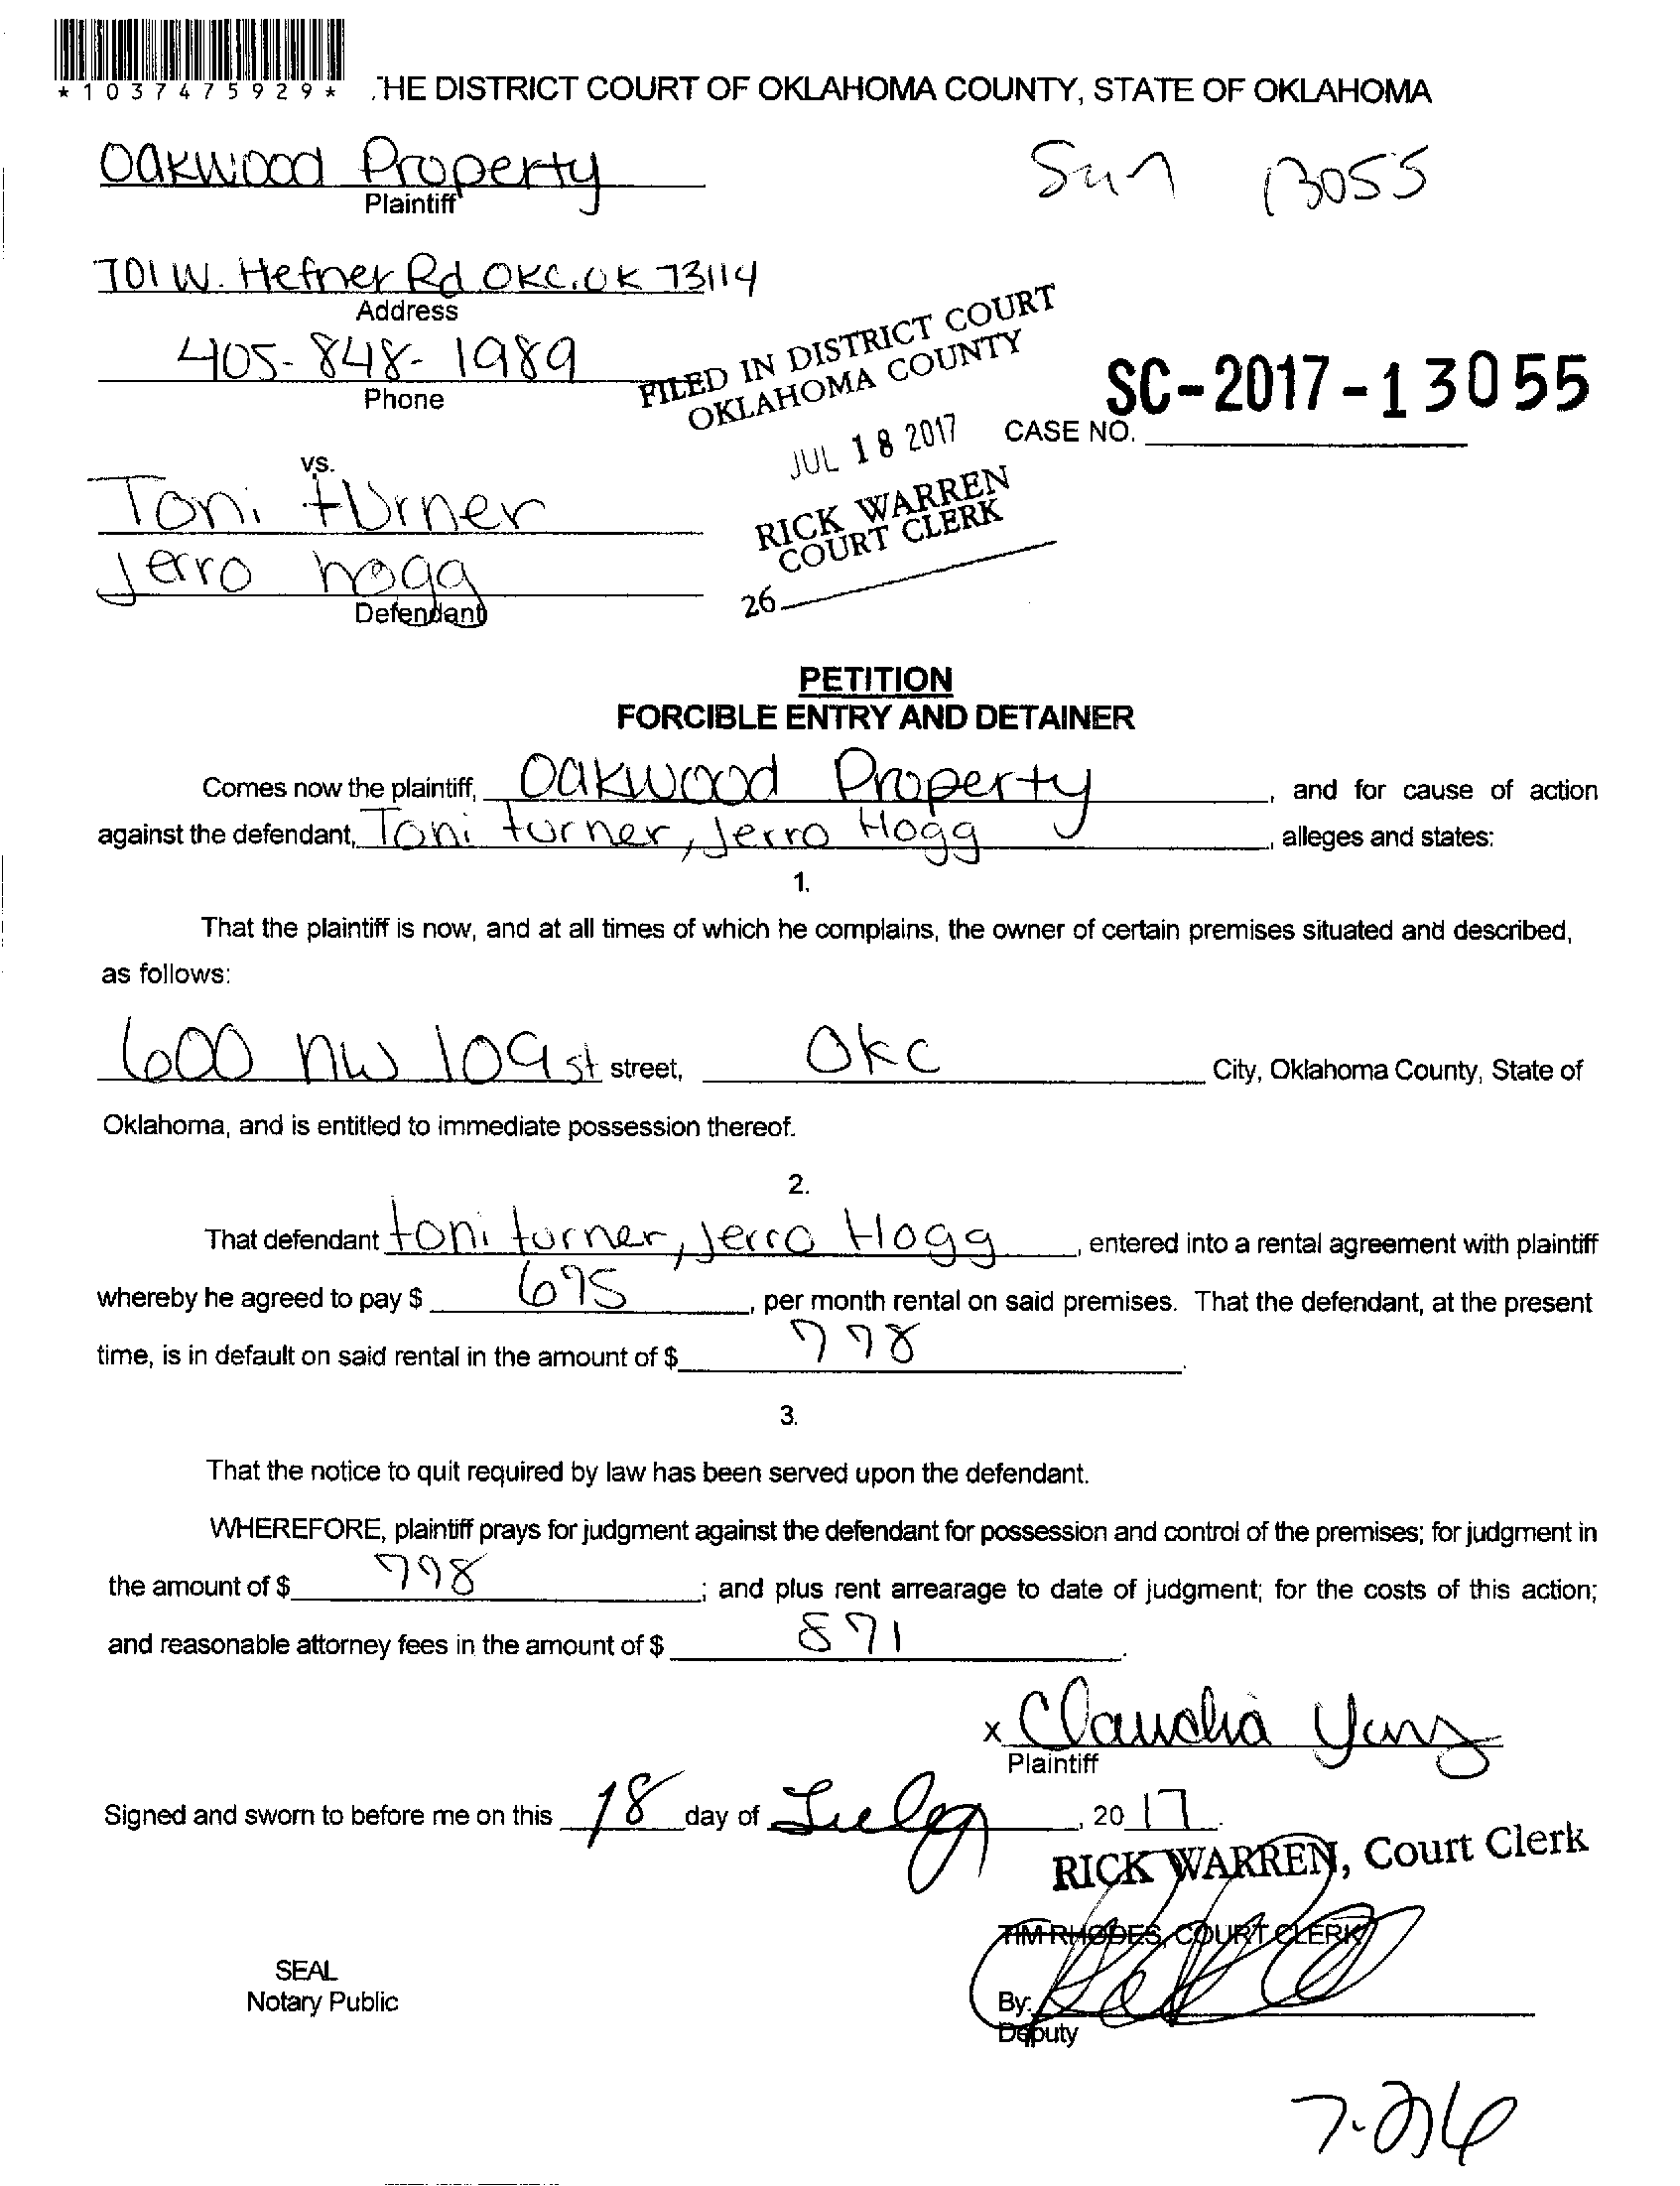 *1037475929*
HE DISTRICT COURT OF OKLAHOMA COUNTY, STATE OF OKLAHOMA
Oakwood Property
Plaintiff
13055
701 W. Hefner Rd OKC, OK 73114
Address
405-848-1989
Phone
FILED IN DISTRICT COURT
OKLAHOMA COUNTY
JUL 18 2017
RICK WARREN
COURT CLERK
26
SC-2017-13055
CASE NO.
vs.
Toni turner
Jerro hogg
Defendant
PETITION
FORCIBLE ENTRY AND DETAINER
Comes now the plaintiff, Oakwood Property, and for cause of action
against the defendant, Toni turner, Jerro Hogg, alleges and states:
1.
That the plaintiff is now, and at all times of which he complains, the owner of certain premises situated and described,
as follows:
600 NW 109 st street, OKC City, Oklahoma County, State of
Oklahoma, and is entitled to immediate possession thereof.
2.
That defendant toni turner, Jerro Hogg, entered into a rental agreement with plaintiff
whereby he agreed to pay $ 695, per month rental on said premises. That the defendant, at the present
time, is in default on said rental in the amount of $ 778.
3.
That the notice to quit required by law has been served upon the defendant.
WHEREFORE, plaintiff prays for judgment against the defendant for possession and control of the premises; for judgment in
the amount of $ 778; and plus rent arrearage to date of judgment; for the costs of this action;
and reasonable attorney fees in the amount of $ 871.
x Claudia
Plaintiff
Signed and sworn to before me on this 18 day of July, 2017.
RICK WARREN, Court Clerk
TIM RHODES, COURT CLERK
SEAL
Notary Public
By:
Deputy
7-26